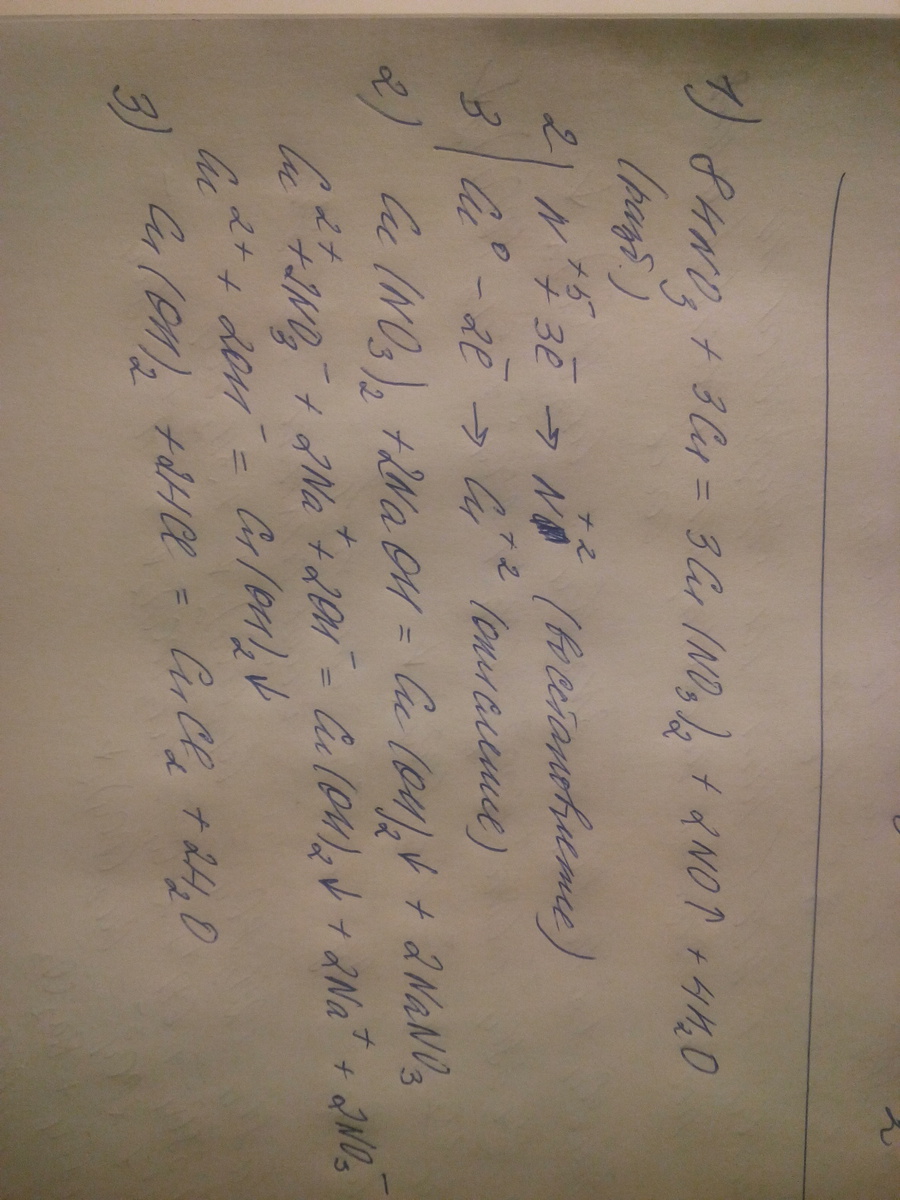 1) 8HNO₃ + 3Cu = 3Cu(NO₃)₂ + 2NO↑ + 4H₂O
(разб.)
2 | N⁺⁵ + 3e̅ → N⁺² (восстановление)
3 | Cu⁰ - 2e̅ → Cu⁺² (окисление)
2) Cu(NO₃)₂ + 2NaOH = Cu(OH)₂↓ + 2NaNO₃
Cu²⁺ + 2NO₃⁻ + 2Na⁺ + 2OH⁻ = Cu(OH)₂↓ + 2Na⁺ + 2NO₃⁻
Cu²⁺ + 2OH⁻ = Cu(OH)₂↓
3) Cu(OH)₂ + 2HCl = CuCl₂ + 2H₂O